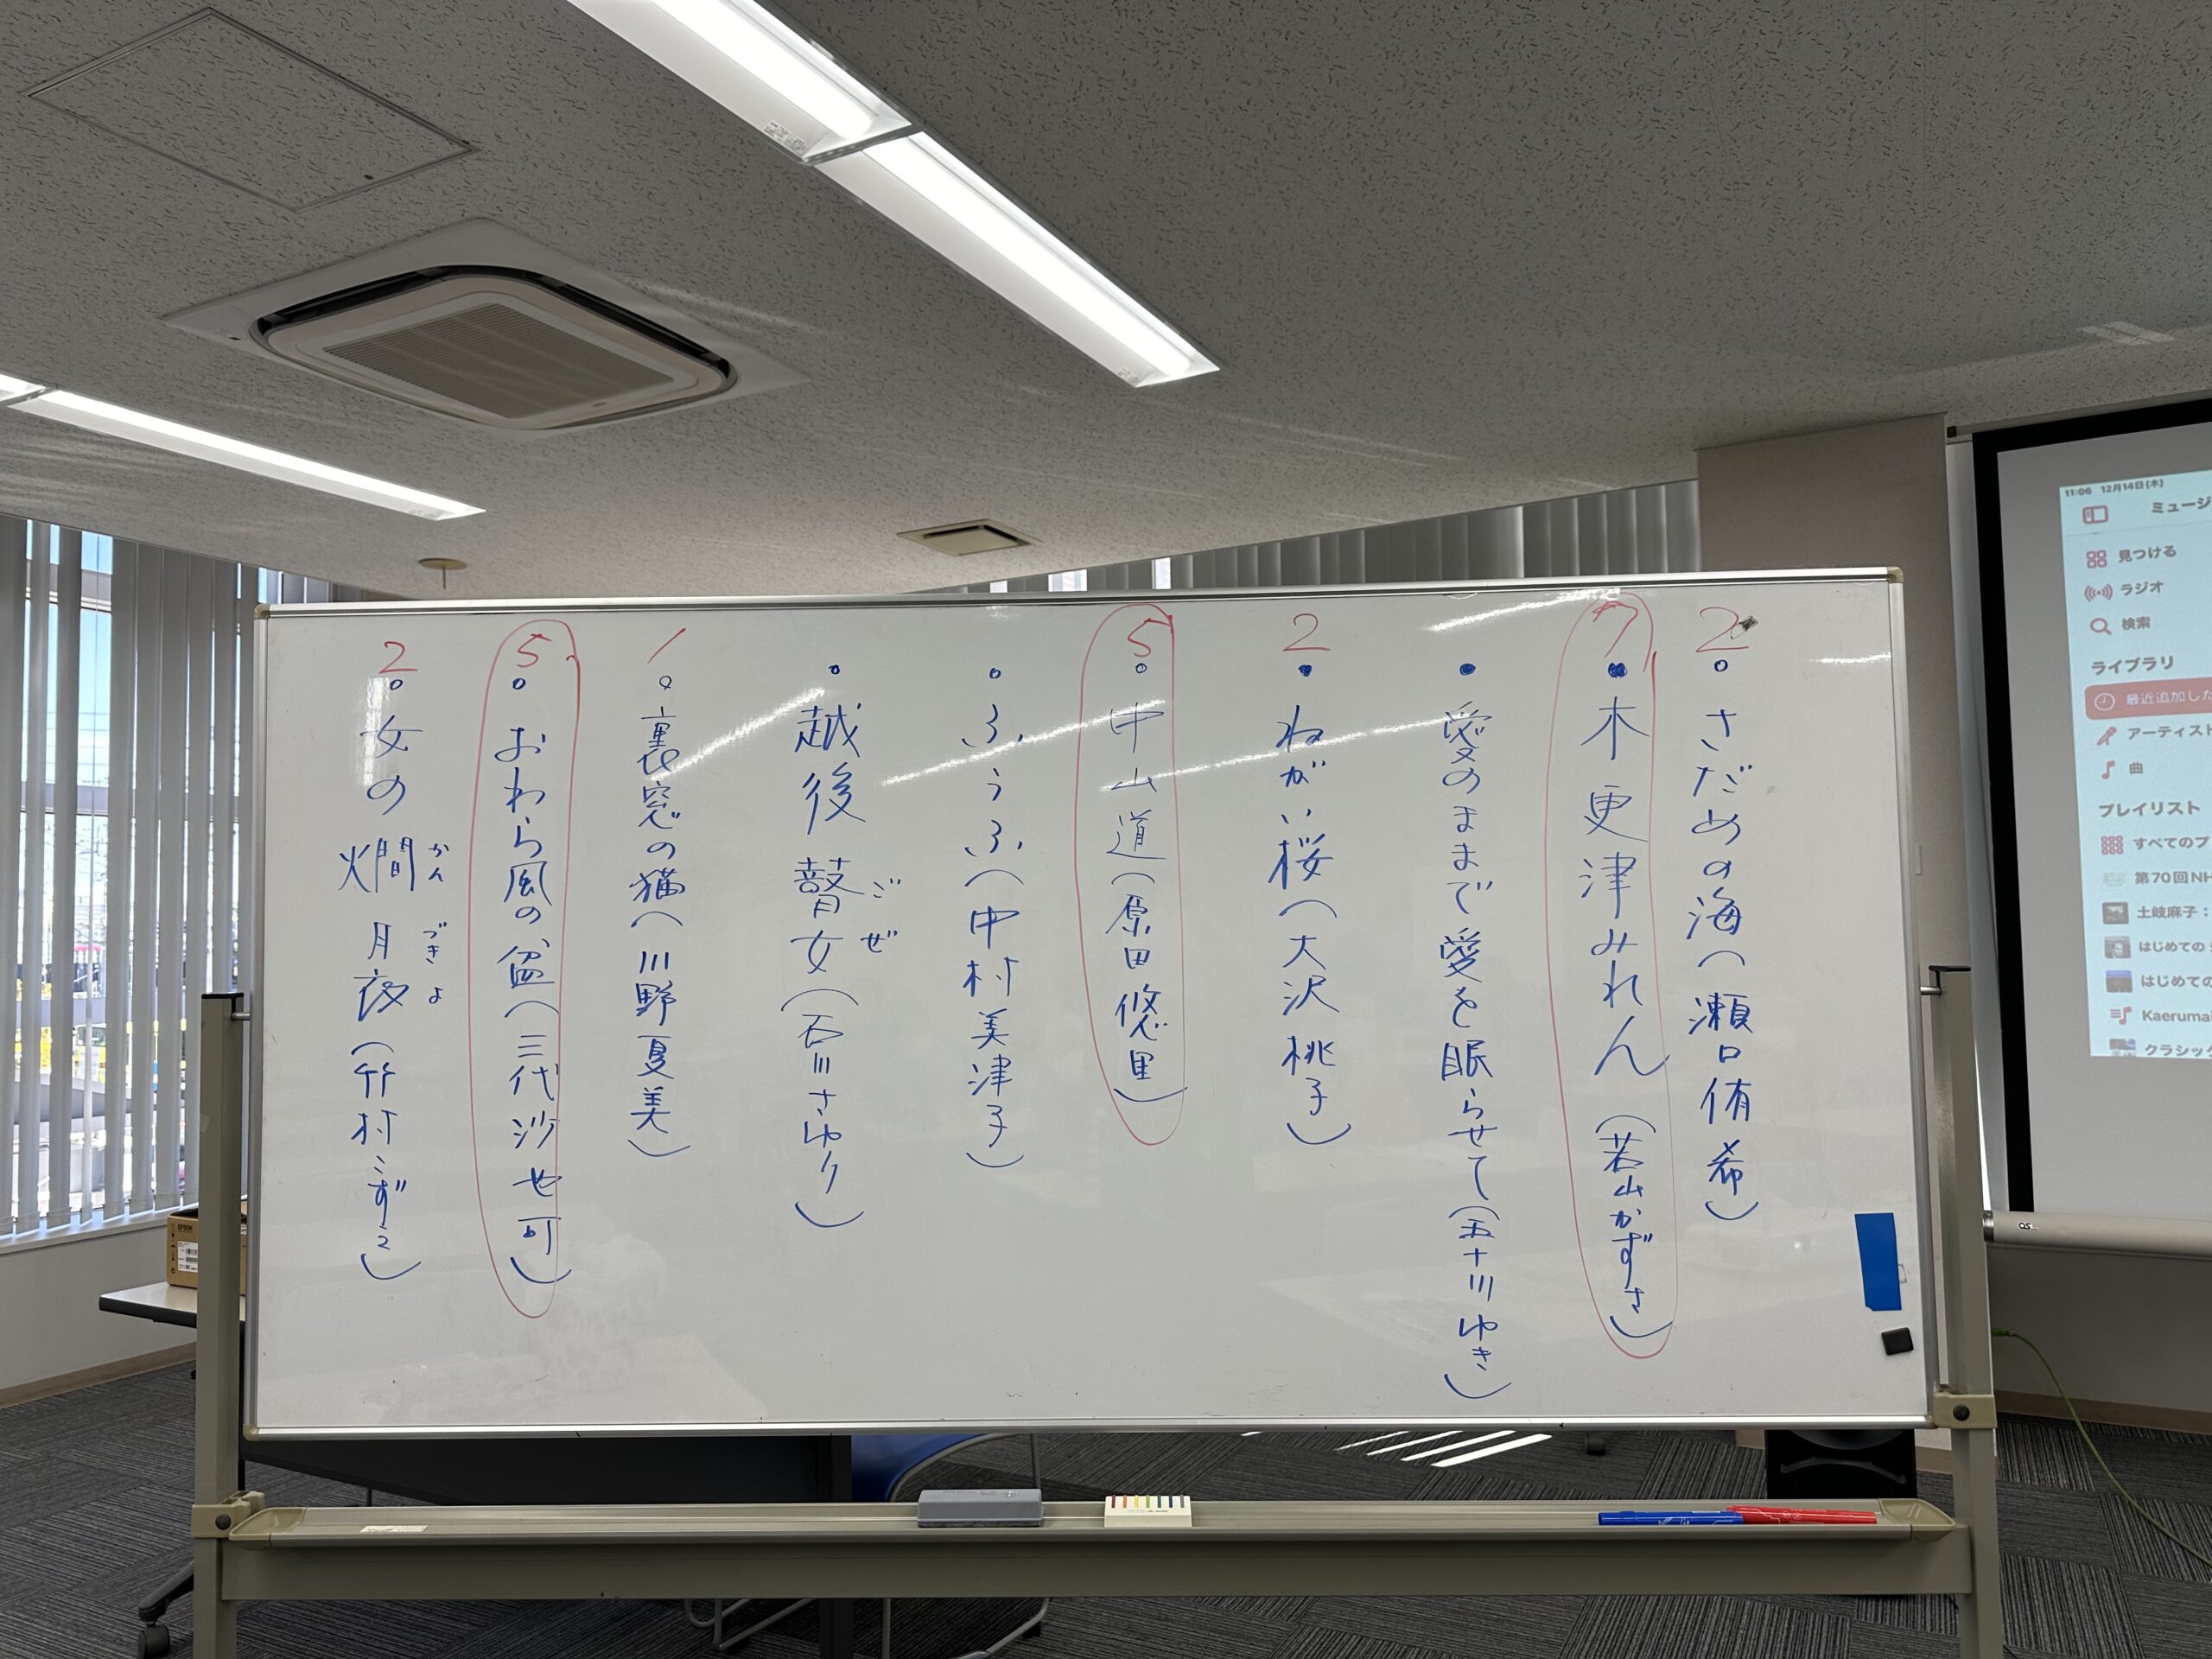 2
・さだめの海(瀬口侑希)
7
・木更津みれん(若山かずさ)
・愛のままで愛を眠らせて(五十川ゆき)
2
・ねがい桜(大沢桃子)
5
・中山道(原田悠里)
・ふうふ(中村美津子)
・越後瞽女(石川さゆり)
ごぜ
1
・裏窓の猫(川野夏美)
5
・おわら風の盆(三代沙也可)
2
・女の燗月夜(竹村こずえ)
かんづきよ
11:06 12月14日(木)
ミュージ
見つける
ラジオ
検索
ライブラリ
最近追加した
アーティスト
曲
プレイリスト
すべてのプ
第70回NH
土岐麻子:
はじめての
はじめての
Kaeruma
クラシック
OS
EPSON